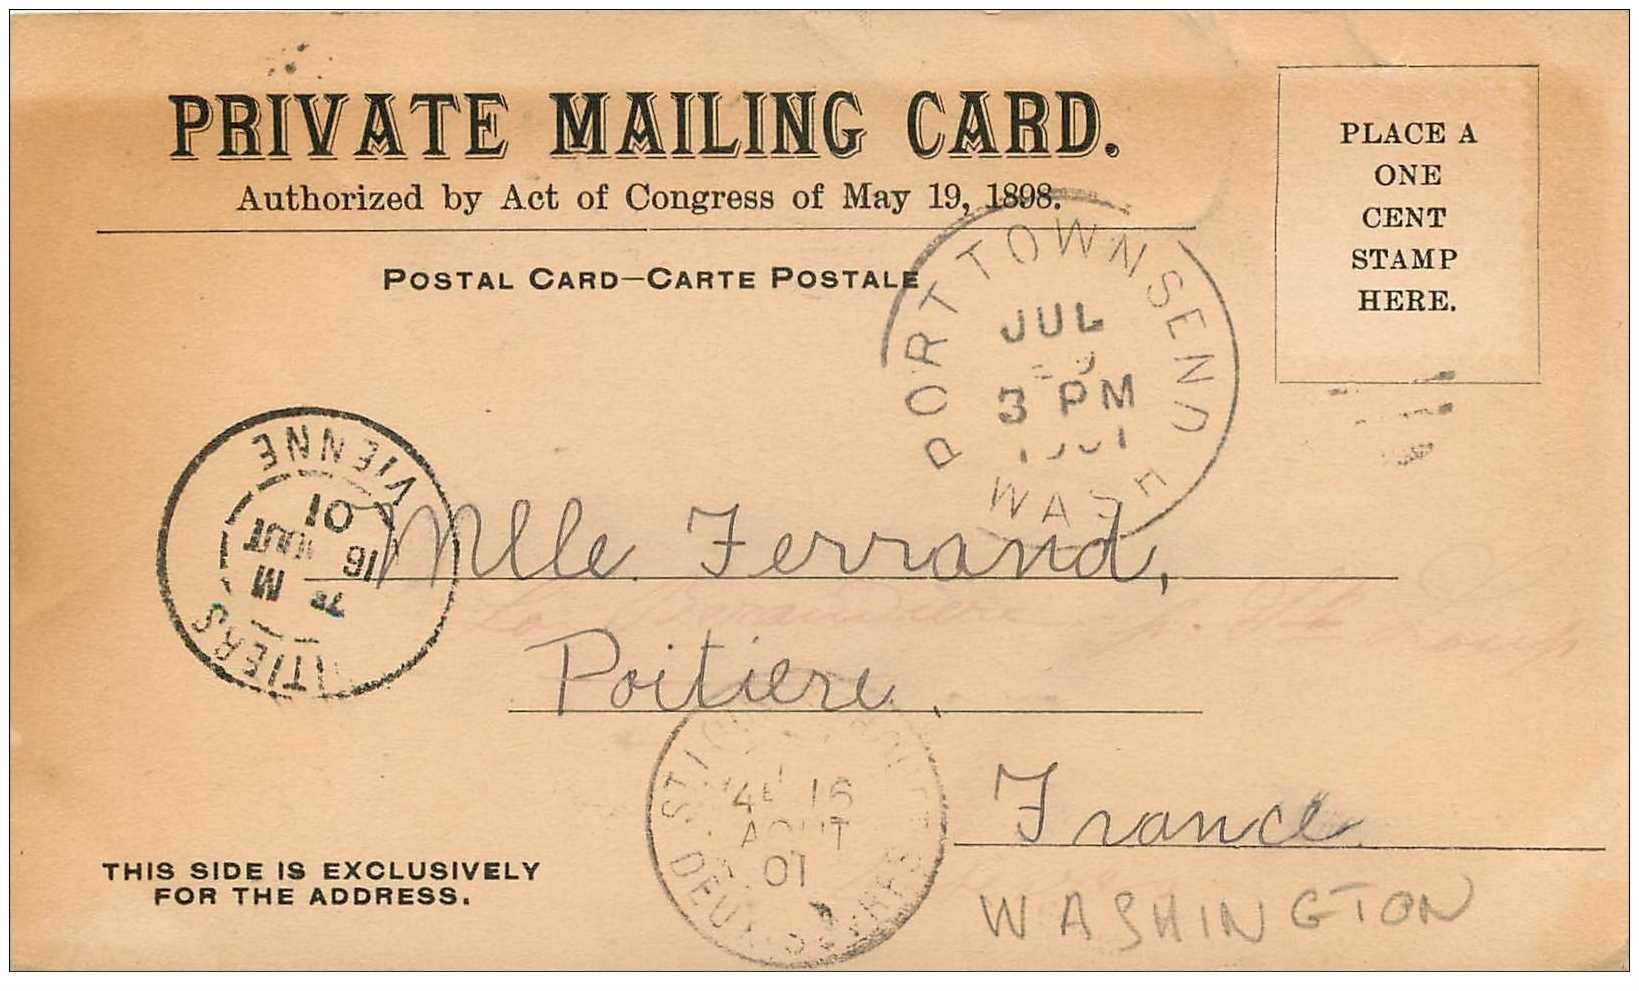 PRIVATE MAILING CARD.
Authorized by Act of Congress of May 19, 1898.
POSTAL CARD—CARTE POSTALE
PLACE A
ONE
CENT
STAMP
HERE.
PORT TOWNSEND
JUL
3 PM
1901
WASH
VIENNE
01
16 AOUT
7 M
Mlle. Ferrand,
Poitiere,
France.
16
AOUT
01
DEUX-SEVRES
THIS SIDE IS EXCLUSIVELY
FOR THE ADDRESS.
WASHINGTON